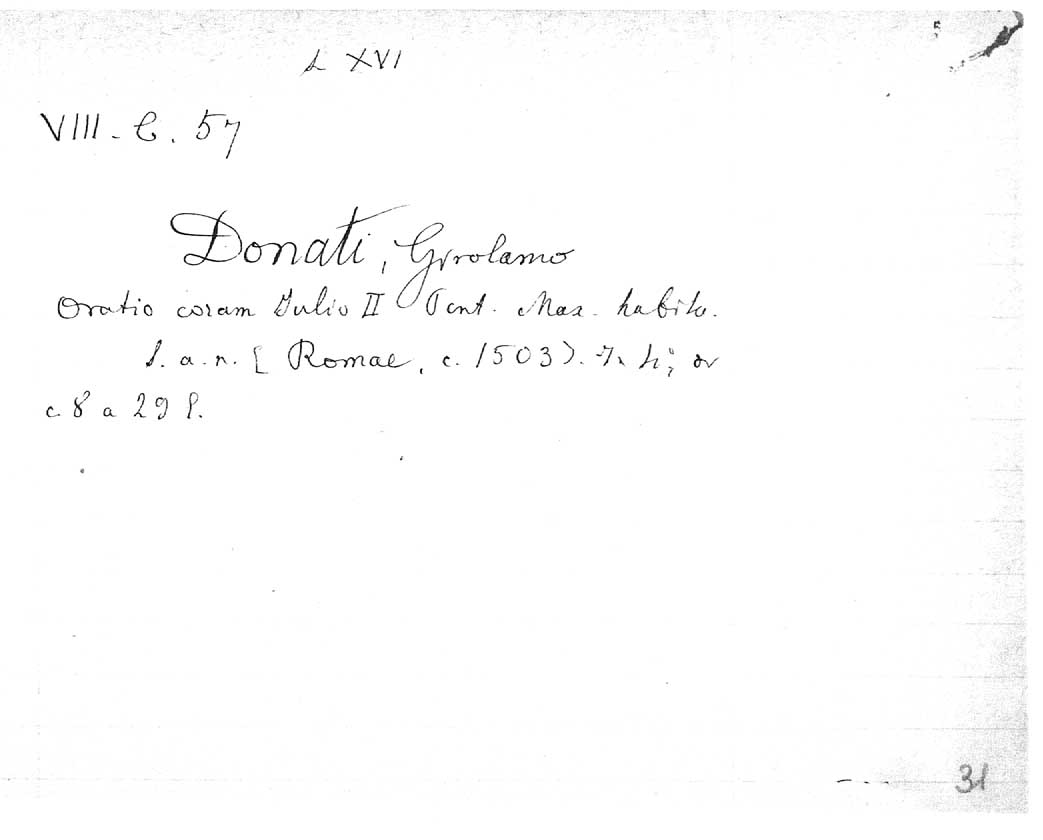 L XVI
VIII - C. 57
Donati, Girolamo
Oratio coram Iulio II Pont. Max. habita.
s. a. n. [Romae, c. 1503). In 4°;
c. 8 a 29 l.
31